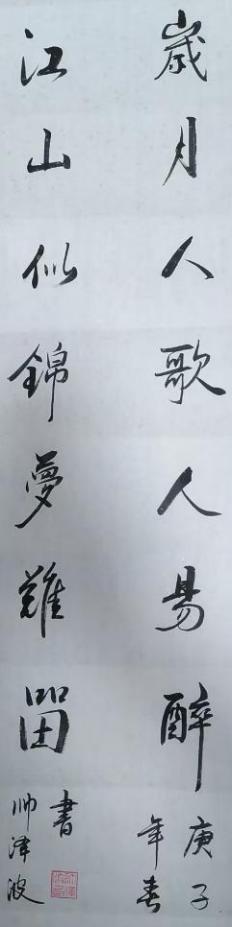 歲月入歌人易醉
庚子
年春
江山似錦夢難㽞
書
帅泽波